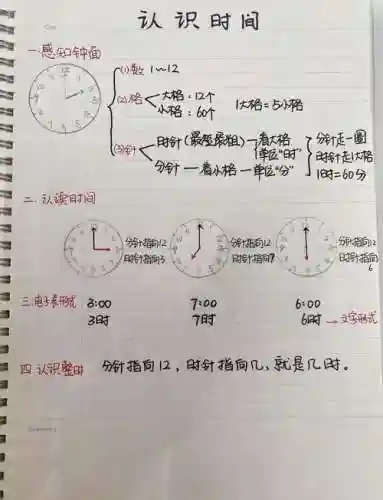 认识时间
一.感知钟面
(1)数 1~12
(2)格 大格：12个 1大格=5小格
小格：60个
(3)针 时针(最短最粗)—看大格 分针走一圈
(单位"时" 时针走1大格
分针—看小格—单位"分" 1时=60分
二.认读时间
分针指向12 分针指向12 分针指向12
时针指向3 时针指向7 时针指向6
三.电子表形式 3:00 7:00 6:00
3时 7时 6时→文字形式
四.认识整时 分针指向12，时针指向几，就是几时。